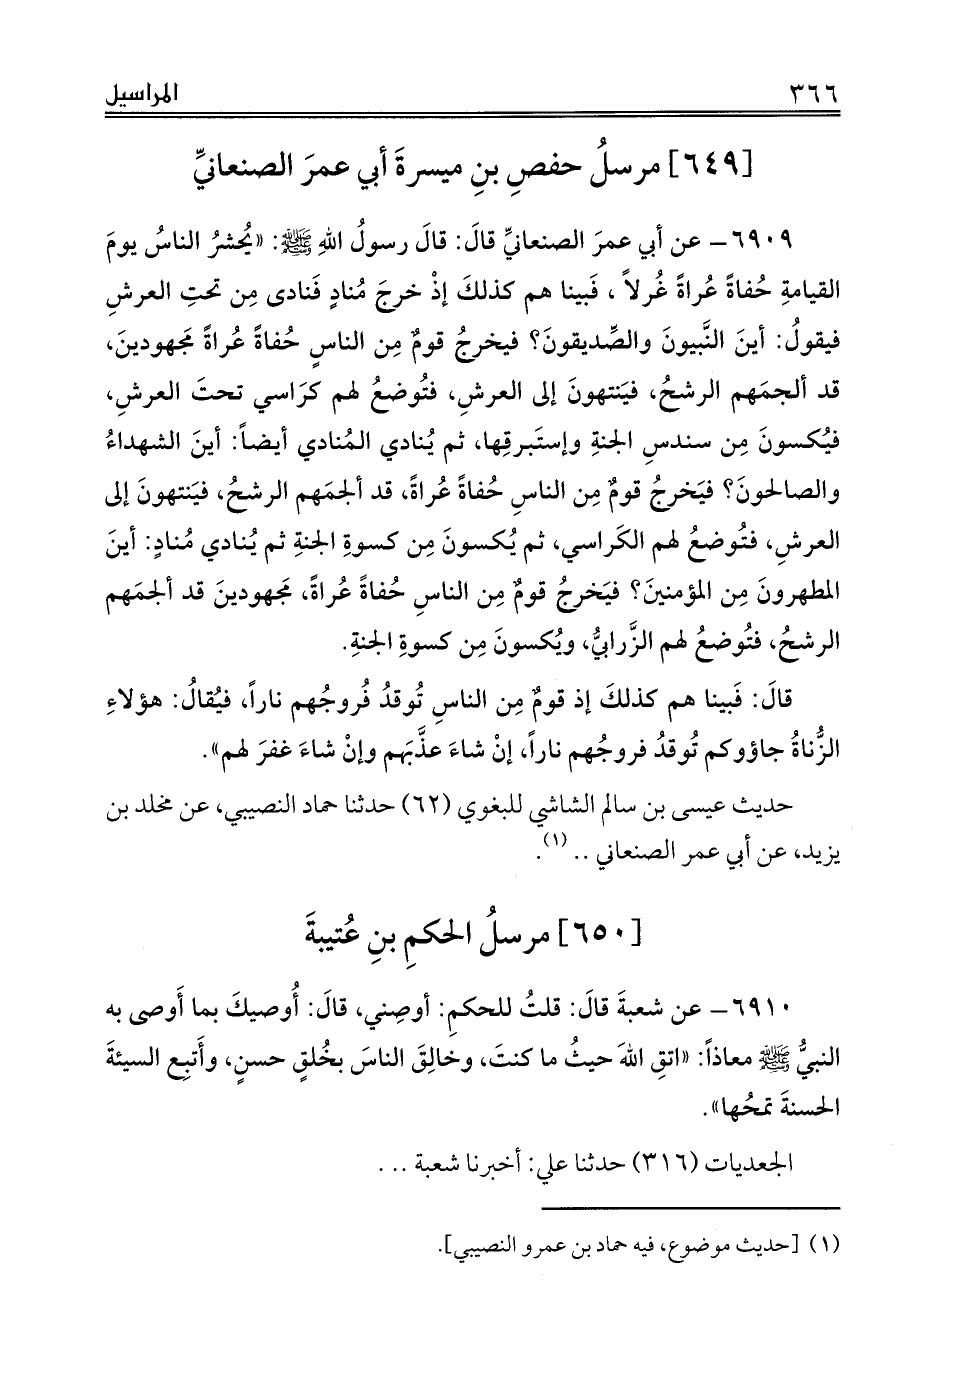 ٣٦٦
المراسيل
[٦٤٩] مرسلُ حفصِ بنِ ميسرةَ أبي عمرَ الصنعانيِّ
٦٩٠٩- عن أبي عمرَ الصنعانيِّ قالَ: قالَ رسولُ اللهِ ﷺ: «يُحشرُ الناسُ يومَ
القيامةِ حُفاةً عُراةً غُرلاً ، فَبينا هم كذلكَ إذْ خرجَ مُنادٍ فَنادى مِن تحتِ العرشِ
فيقولُ: أينَ النَّبيونَ والصِّديقونَ؟ فيخرجُ قومٌ مِن الناسِ حُفاةً عُراةً مجهودينَ،
قد ألجمَهم الرشحُ، فيَنتهونَ إلى العرشِ، فتُوضعُ لهم كرَاسي تحتَ العرشِ،
فيُكسونَ مِن سندسِ الجنةِ وإستَبرقِها، ثم يُنادي المُنادي أيضاً: أينَ الشهداءُ
والصالحونَ؟ فيَخرجُ قومٌ مِن الناسِ حُفاةً عُراةً، قد ألجمَهم الرشحُ، فيَنتهونَ إلى
العرشِ، فتُوضعُ لهم الكَراسي، ثم يُكسونَ مِن كسوةِ الجنةِ ثم يُنادي مُنادٍ: أينَ
المطهرونَ مِن المؤمنينَ؟ فيَخرجُ قومٌ مِن الناسِ حُفاةً عُراةً، مَجهودينَ قد ألجمَهم
الرشحُ، فتُوضعُ لهم الزَّرابيُّ، ويُكسونَ مِن كسوةِ الجنةِ.
قالَ: فَبينا هم كذلكَ إذ قومٌ مِن الناسِ تُوقدُ فُروجُهم ناراً، فيُقالُ: هؤلاءِ
الزُّناةُ جاؤوكم تُوقدُ فروجُهم ناراً، إنْ شاءَ عذَّبَهم وإنْ شاءَ غفرَ لهم».
حديث عيسى بن سالم الشاشي للبغوي (٦٢) حدثنا حماد النصيبي، عن مخلد بن
يزيد، عن أبي عمر الصنعاني .. (١).
[٦٥٠] مرسلُ الحكمِ بنِ عُتيبةَ
٦٩١٠- عن شعبةَ قالَ: قلتُ للحكمِ: أوصِني، قالَ: أُوصيكَ بما أَوصى به
النبيُّ ﷺ معاذاً: «اتقِ اللهَ حيثُ ما كنتَ، وخالِقَ الناسَ بخُلقٍ حسنٍ، وأَتبِعِ السيئةَ
الحسنةَ تمحُها».
الجعديات (٣١٦) حدثنا علي: أخبرنا شعبة ...
(١) [حديث موضوع، فيه حماد بن عمرو النصيبي].